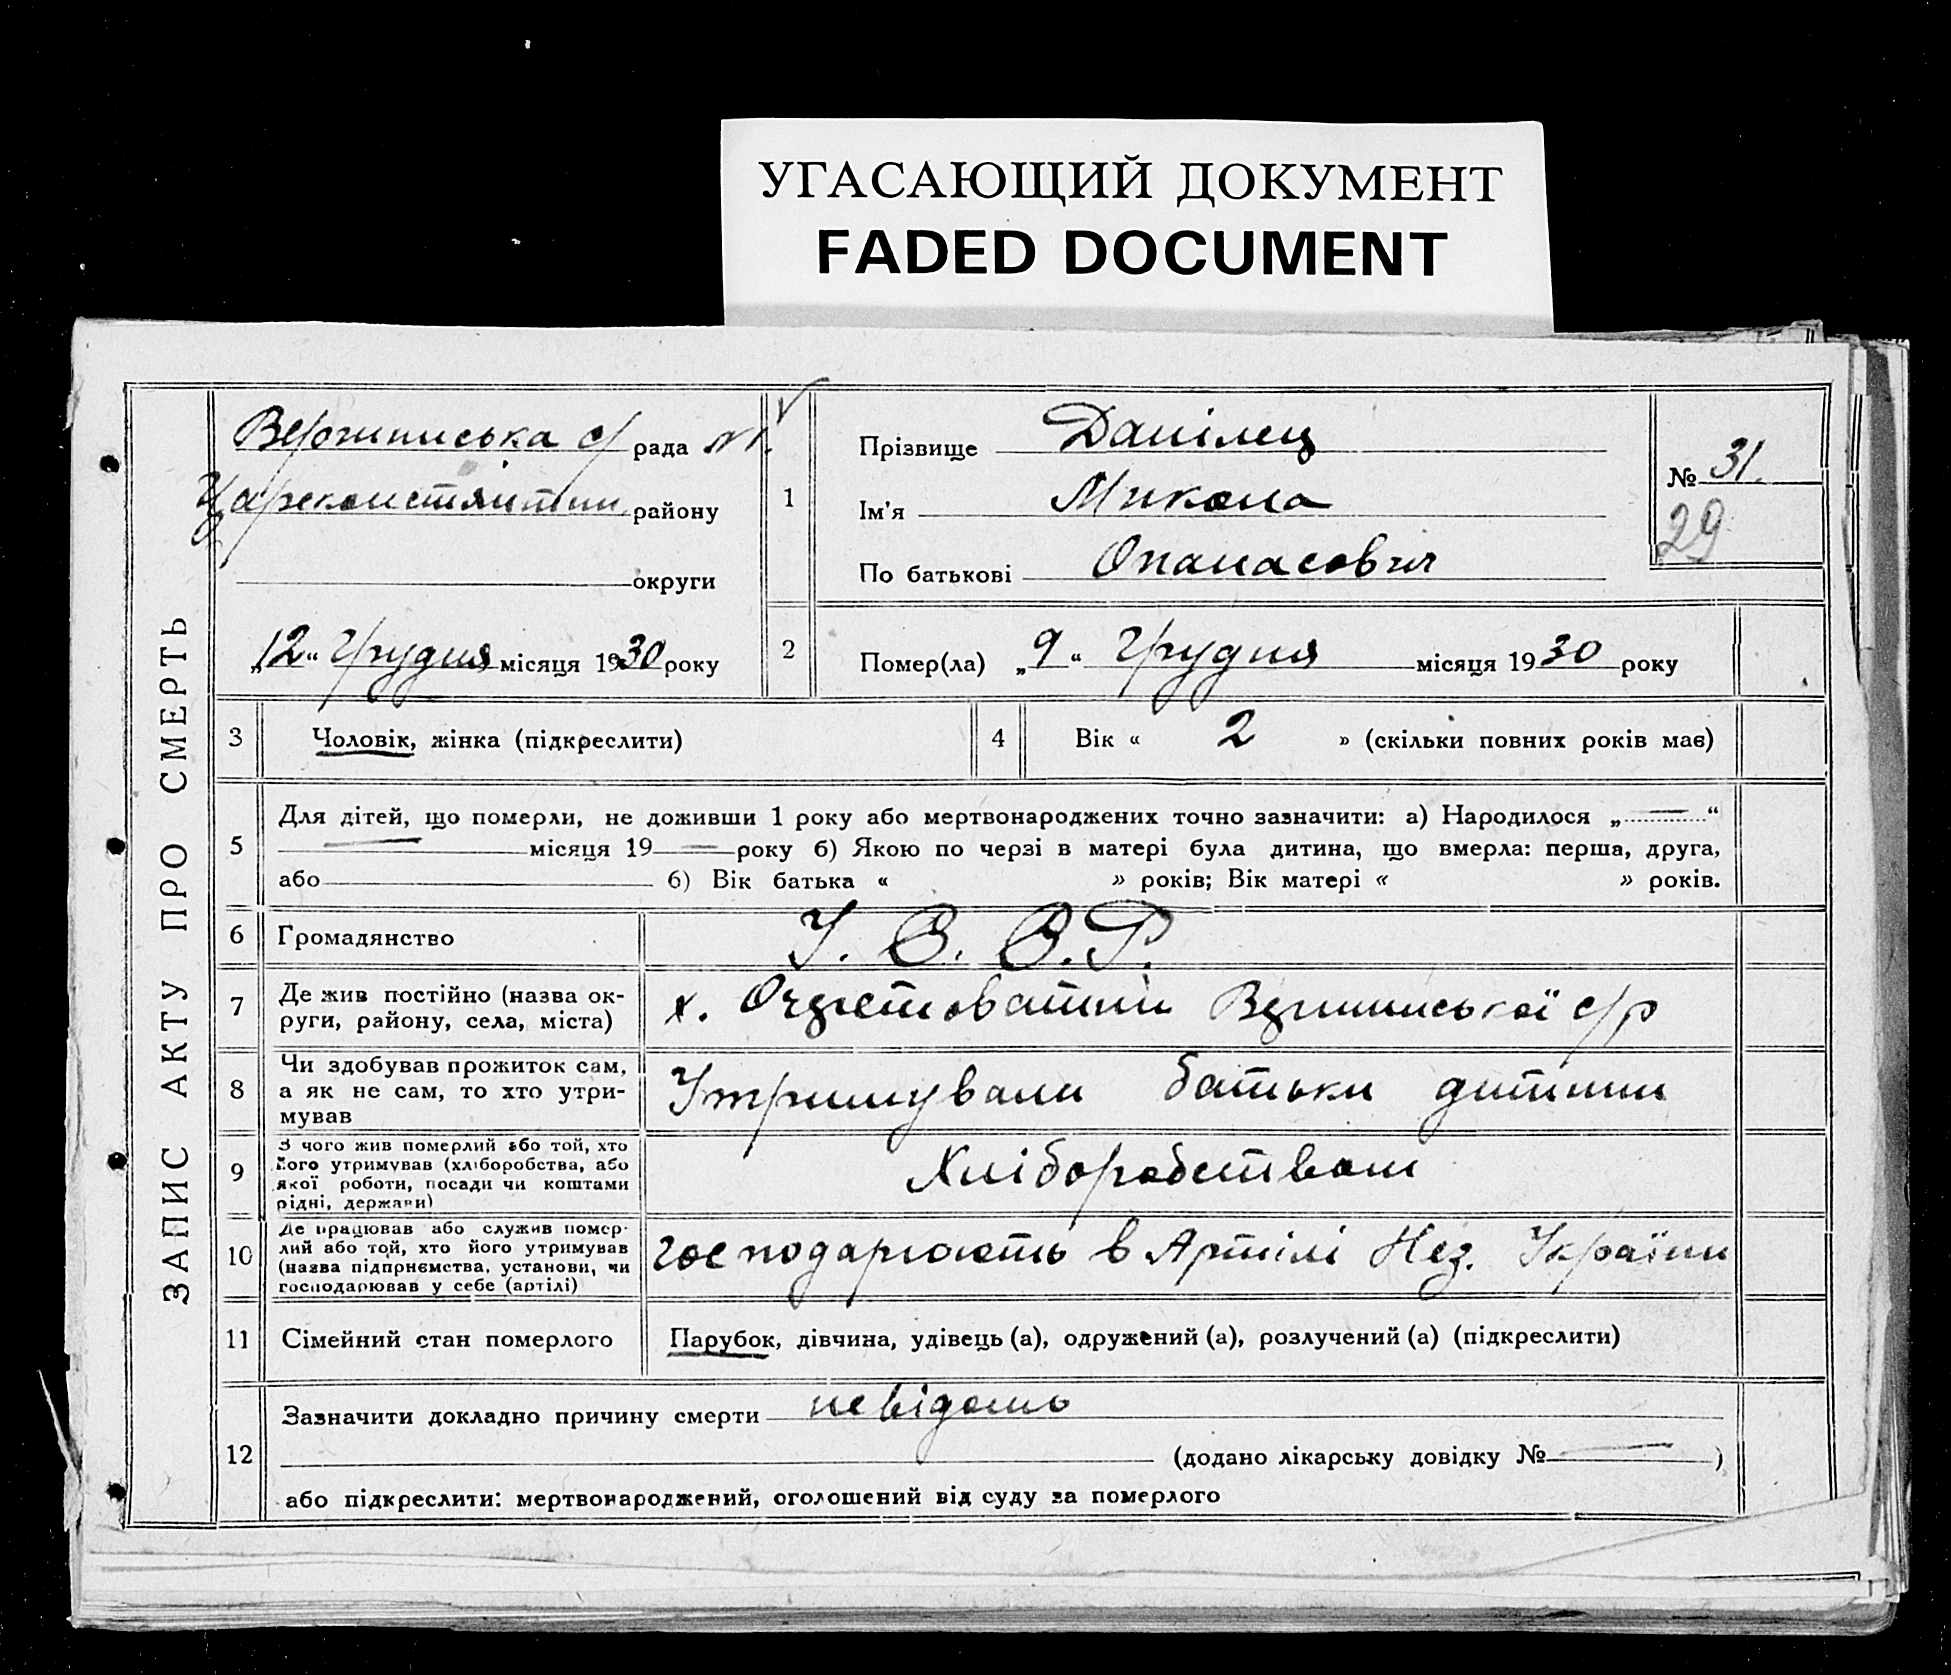 УГАСАЮЩИЙ ДОКУМЕНТ
FADED DOCUMENT
ЗАПИС АКТУ ПРО СМЕРТЬ
с/рада №1.
району
округи
„12“ Грудня місяця 1930 року
1
Прізвище Данілец
Ім'я Микола
По батькові Опанасович
№ 31.
29
2
Помер(ла) „9“ Грудня місяця 1930 року
3 Чоловік, жінка (підкреслити)
4 Вік « 2 » (скільки повних років має)
5
Для дітей, що померли, не доживши 1 року або мертвонароджених точно зазначити: а) Народилося „—“
— місяця 19 — року б) Якою по черзі в матері була дитина, що вмерла: перша, друга,
або б) Вік батька « » років; Вік матері « » років.
6 Громадянство У. С. С. Р.
7
Де жив постійно (назва ок-
руги, району, села, міста)
х. с/р
8
Чи здобував прожиток сам,
а як не сам, то хто утри-
мував
Утримували батьки дитини
9
З чого жив померлий або той, хто
його утримував (хліборобства, або
якої роботи, посади чи коштами
рідні, держави)
Хліборобством
10
Де працював або служив помер-
лий або той, хто його утримував
(назва підприємства, установи, чи
господарював у себе (артілі)
господарюють в Артілі Нез. України
11 Сімейний стан померлого Парубок, дівчина, удівець (а), одружений (а), розлучений (а) (підкреслити)
12
Зазначити докладно причину смерти невідомо
(додано лікарську довідку № — )
або підкреслити: мертвонароджений, оголошений від суду за померлого